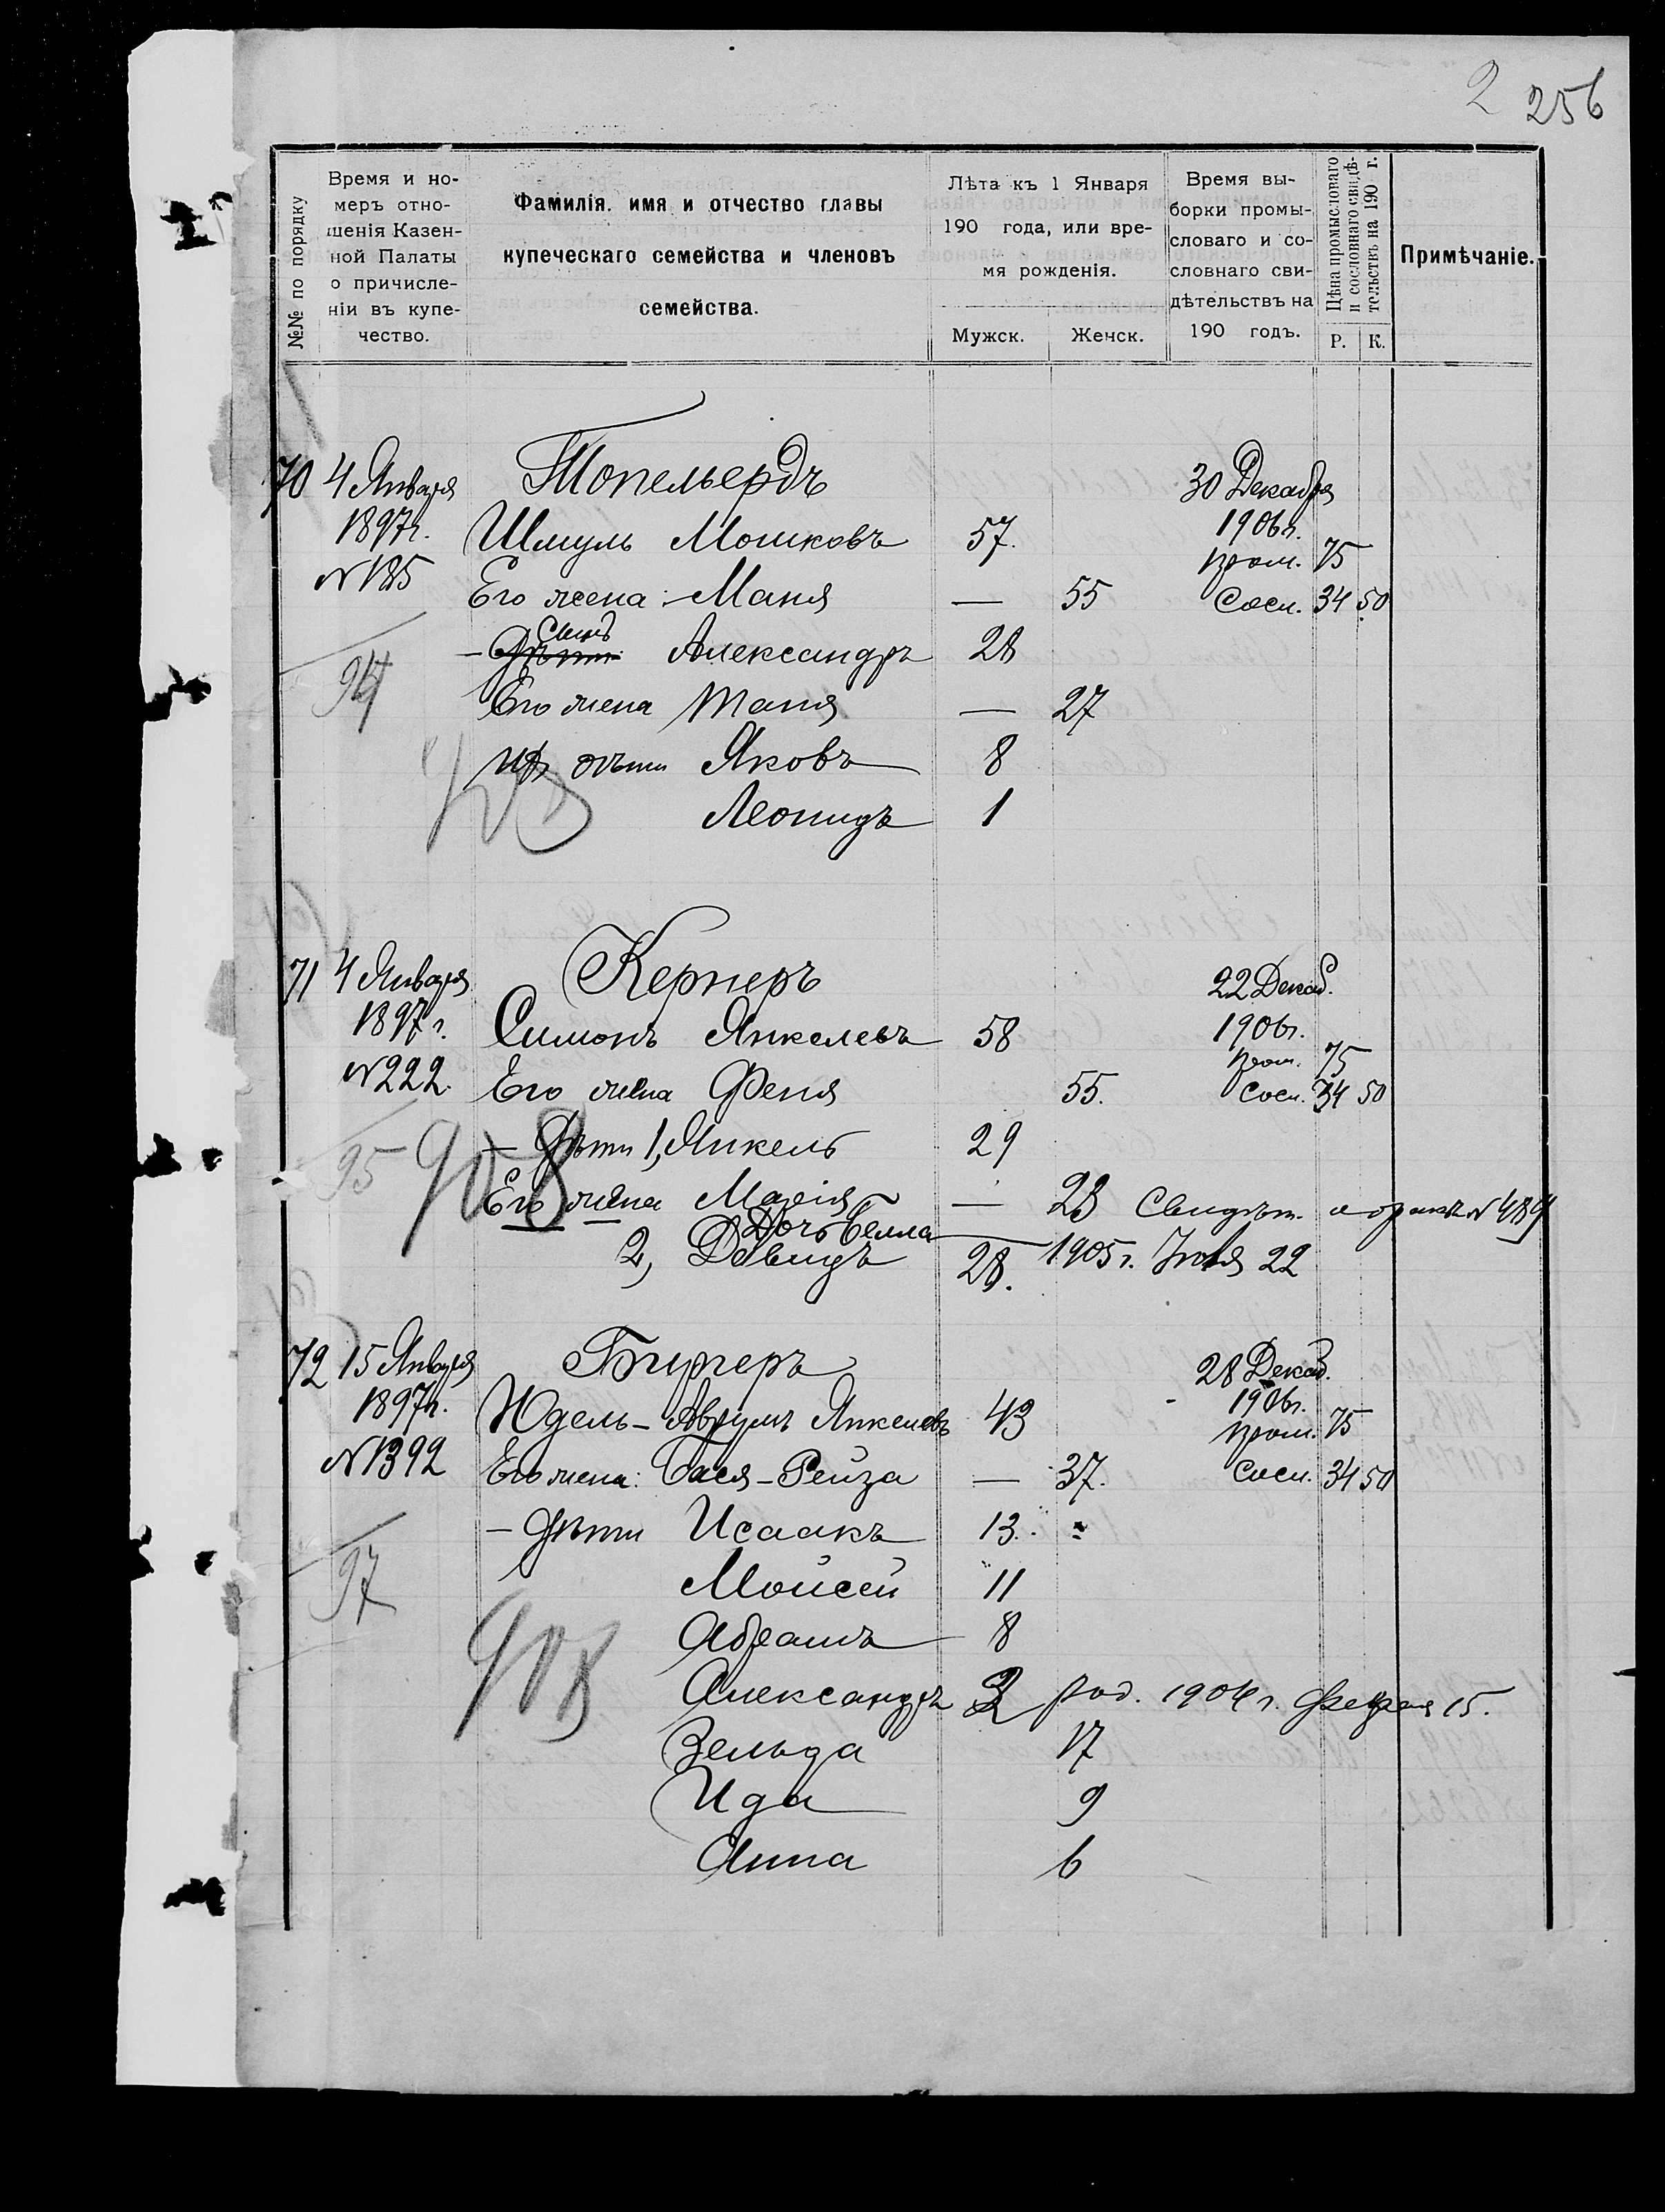 2 256
№№ по порядку
Время и но-
меръ отно-
шенія Казен-
ной Палаты
о причисле-
ніи въ купе-
чество.
Фамилія, имя и отчество главы
купеческаго семейства и членовъ
семейства.
Лѣта къ 1 Января
190 года, или вре-
мя рожденія.
Мужск. Женск.
Время вы-
борки промы-
словаго и со-
словнаго сви-
дѣтельствъ на
190 годъ.
Цѣна промысловаго
и сословнаго свидѣ-
тельствъ на 190 г.
Р. К.
Примѣчаніе.
70 4 Января 30 Декабря
1897г. Шмуль Мошковъ 57. 1906г.
пром. 75
№ 185 Его жена: Маня — 55 Сосл. 34 50
Сынъ
– Дѣти: Александръ 28
94
Его жена Таня — 27
Их дѣти Яковъ 8
908
Леонидъ 1
71 4 Января Кернеръ 22 Декаб.
1897г. Симонъ Янкелевъ 58 1906г.
пром. 75
№ 222 Его жена Феня 55. Сосл. 34 50
– Дѣти 1, Янкель 29
95 908
Его жена Марія — 23 Свидѣт. о бракѣ № 489
Дочь Белла 1905г. Июля 22
2, Давидъ 28.
72 15 Января Биргеръ 28 Декаб.
1897г. Юдель-Аврумъ Янкелевъ 43 1906г.
пром. 75
№ 1392 Его жена: Бася-Рейза — 37. Сосл. 34 50
– Дѣти Исаакъ 13.
97 Моисей 11
Абрамъ 8
908 Александръ 2 род. 1904г. Февраля 15.
Зельда 17
Ида 9
Анна 6